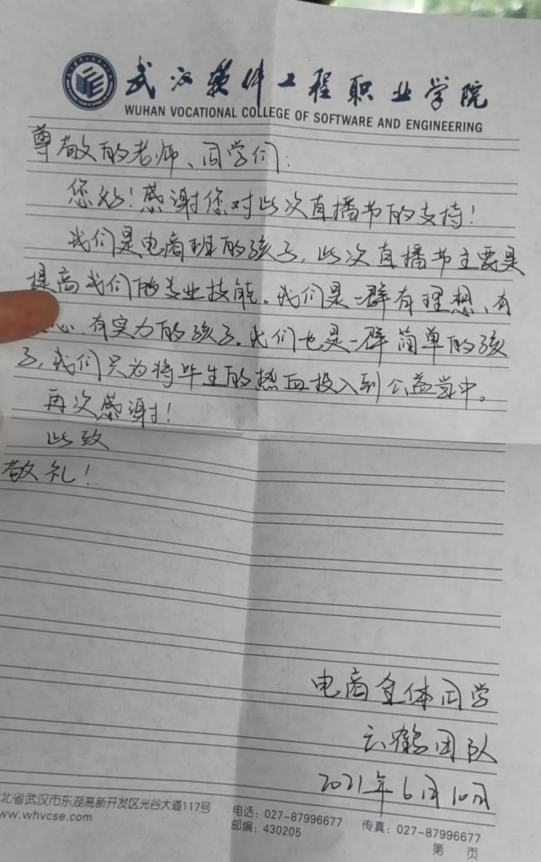 武汉软件工程职业学院
WUHAN VOCATIONAL COLLEGE OF SOFTWARE AND ENGINEERING
尊敬的老师、同学们:
您好!感谢您对此次直播节的支持!
我们是电商班的孩子,此次直播节主要是
提高我们的专业技能。我们是一群有理想、有
心、有实力的孩子。我们也是一群简单的孩
子,我们只为将毕生的热血投入到公益当中。
再次感谢!
此致
敬礼!
电商全体同学
云鹤团队
2021年6月10日
北省武汉市东湖高新开发区光谷大道117号
www.whvcse.com
电话:027-87996677
邮编:430205
传真:027-87996677
第 页